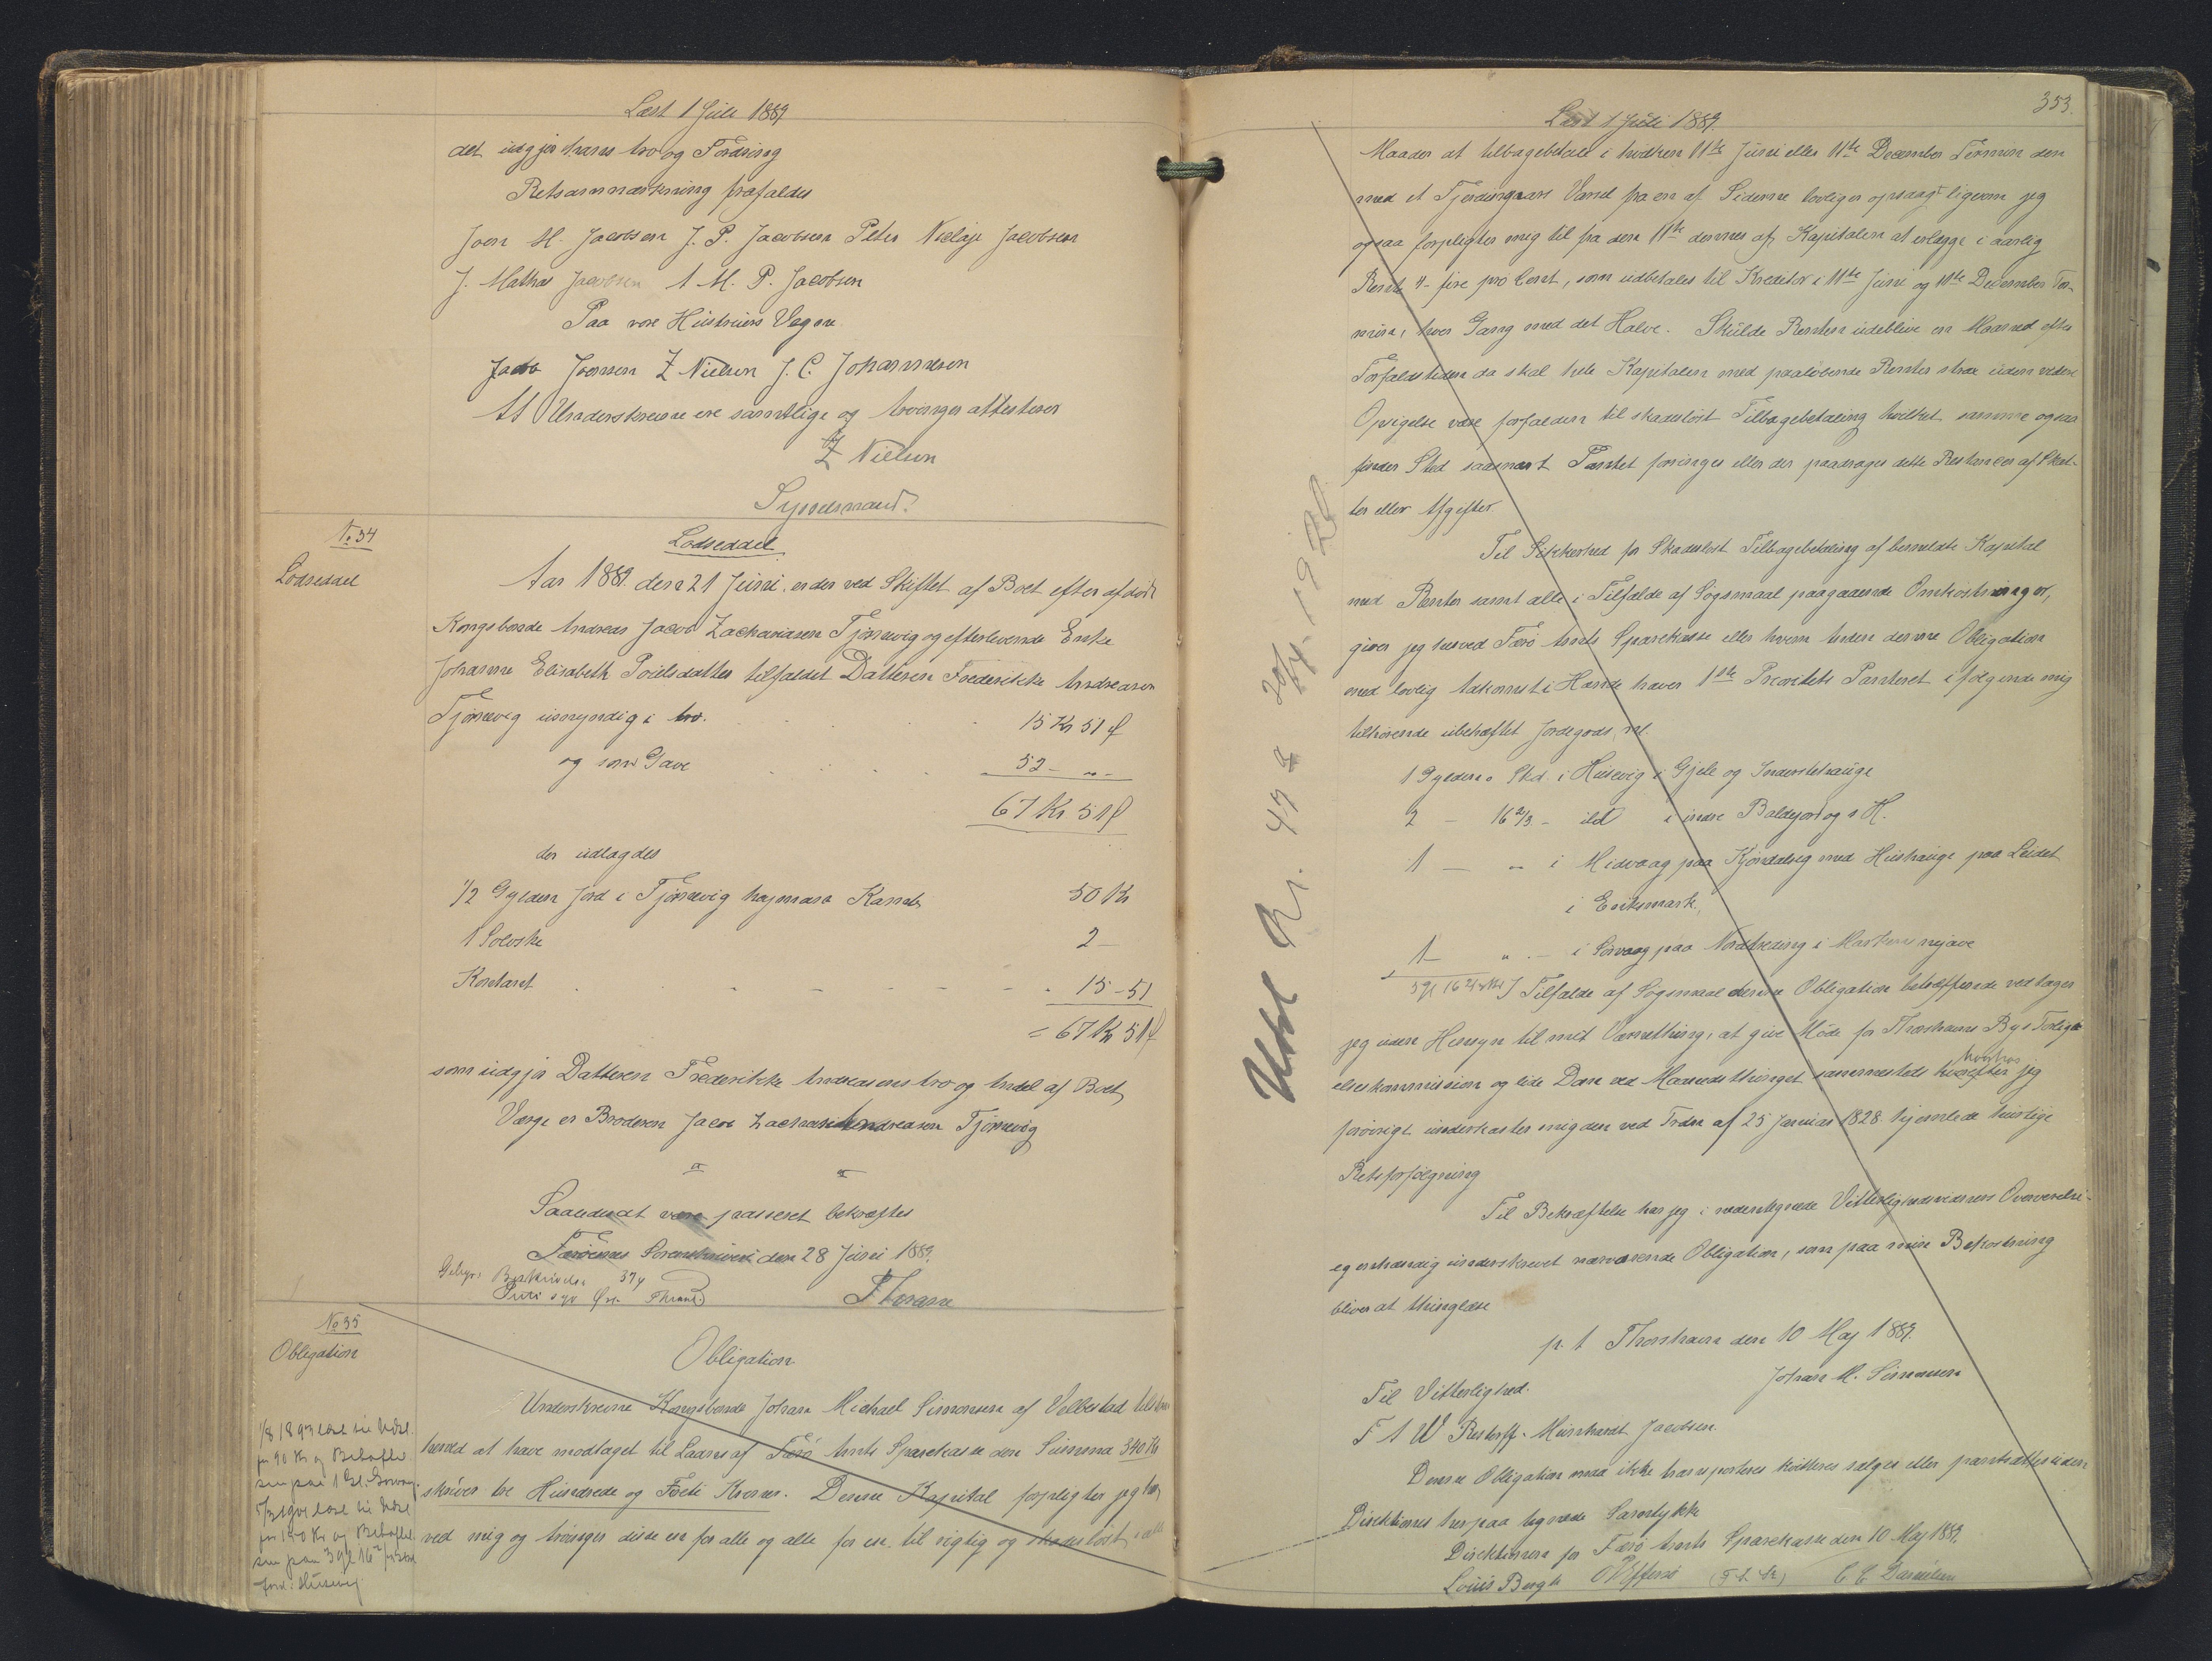 Læst 1 Juli 1889
det udgjør hans Arv og Fordring
Retsanmærkning frafaldes
Joen M. Jacobsen J. P. Jacobsen Peter Nielaje Jacobsen
J. Mathas Jacobsen A M. P. Jacobsen
Paa vore Hustruers Vegne
Jacob Joensen Z Nielsen J. C. Johannesen
At Underskrevne ere samtlige og Arvinger attesterer
Z Nielsen
Sysselmand.
No 34
Lodseddel
Lodseddel
Aar 1889 den 21 Juni er der ved Skiftet af Boet efter afdøde
Kongsbonde Andreas Jacob Zachariasen Tjørnevig og efterlevende Enke
Johanne Elisabeth Poulsdatter tilfaldet Datteren Frederikke Andreasen
Tjørnevig umyndig i Arv. 15 Kr 51 ø
og som Gave 52 - " -
67 Kr 51 ø
der udlagdes
1/2 Gylden Jord i Tjørnevig 50 Kr
1 Sølvske 2 -
Kontant 15 - 51
= 67 Kr 51 ø
som udgjør Datteren Frederikke Andreasens Arv og Andel af Boet
Værge er Broderen Jacob Zacharias Andreasen Tjørnevig
Saaledes at være passeret bekræftes
Færøernes Sorenskriveri den 28 Juni 1889.
Gebyr: Beskrivelse 37
No 35
Obligation
Obligation
Underskrevne Kongsbonde Johan Michael Simonsen af Velbestad tilstaar
herved at have modtaget til Laans af Færø Amts Sparekasse den Summa 340 Kr
skriver tre Hundrede og Forti Kroner. Denne Kapital forpligter jeg her
ved mig og Arvinger disse en for alle og alle for en, til rigtig og skadesløst i alle
353
Læst 1 Juli 1889.
Maader at tilbagebetale i hvilken 11te Juni eller 11te December Termin den
med et Fjerdingaars Varsel fra en af Siderne lovligen opsagt ligesom jeg
ogsaa forpligter mig til fra den 11te dennes af Kapitalen at erlægge i aarlig
Rente 4 - fire pro Cent, som udbetales til Kreditor i 11te Juni og 11te December Ter-
min, hver Gang med det Halve. Skulde Renten udeblive en Maaned efter
Forfaldstiden da skal hele Kapitalen med paaløbende Renter strax uden videre
Opsigelse være forfalden til skadesløst Tilbagebetaling hvilket samme ogsaa
finder Sted saasnart Pantet forringes eller der paadrages dette Restancer af Skat-
ter eller Afgifter
Til Sikkerhed for Skadesløst Tilbagebetaling af bemeldte Kapital
med Renter samt alle i Tilfælde af Søgsmaal paagaaende Omkostninger,
giver jeg herved Færø Amts Sparekasse eller hvem Anden denne Obligation
med lovlig Adkomst i Hænde haver 1ste Prioritets Panteret i følgende mig
tilhørende ubehæftet Jordegods, nl.
1 Gylden " Skd. i Husevig i Gjele og Inderstehauge
2 - 16 2/3 - ibd i indre Boldegord og s H.
1 - " i Midvaag paa med Hushauge paa Leidet
i Eriksmark.
1 - " - i Sørvaag paa i Marken
5 gl 16 2/3 Skd I Tilfælde af Søgsmaal denne Obligation betræffende vedtager
jeg uden Hensyn til mit Værnething, at give Møde for Thorshavns Byes Forlig-
elseskommission og lide Dom ved Maanedsthinget sammesteds hvorhos jeg
forøvrigt underkaster mig den ved Frdn af 25 Januar 1828 hjemlede hurtige
Retsforfølgning
Til Bekræftelse har jeg i undertegnede Vitterlighedsvidners Overværelse
egenhændig underskrevet nærværende Obligation, som paa min Bekostning
bliver at thinglæse
p. t Thorshavn den 10 Maj 1889.
Johan M. Simonsen
Til Vitterlighed.
F A W Restorff. Meinhardt Jacobsen
Denne Obligation maa ikke transporteres kvitteres sælges eller pantsættes uden
Direktionens herpaa tegnede Samtykke
Direktionen for Færø Amts Sparekasse den 10 Maj 1889.
Louis Bergh O Effersø C C Danielsen
Udsl. 20/4 1928